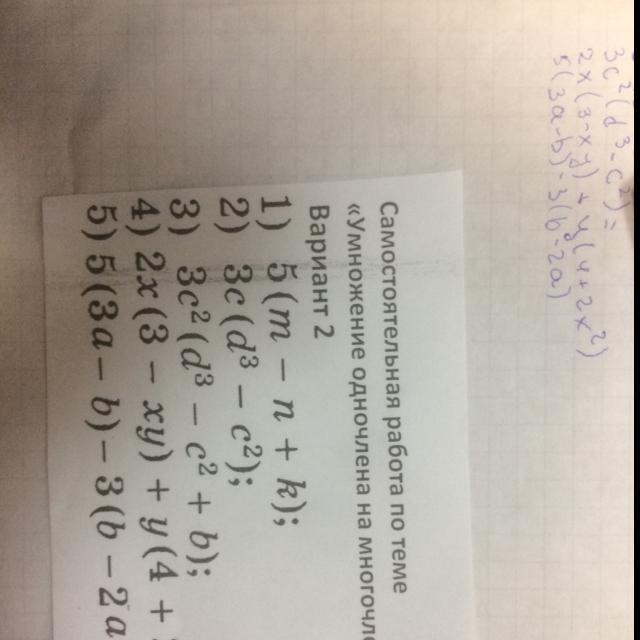 3c²(d³-c²)=
2x(3-xy)+y(4+2x²)
5(3a-b)-3(b-2a)
Самостоятельная работа по теме
«Умножение одночлена на многочле
Вариант 2
1) 5(m − n + k);
2) 3c(d³ − c²);
3) 3c²(d³ − c² + b);
4) 2x(3 − xy) + y(4 +
5) 5(3a − b) − 3(b − 2a